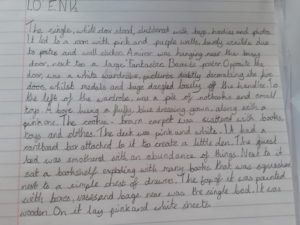 The single, white door stood, cluttered with bags, hoodies and photos.
It led to a room with pink and purple walls, barely visible due
to posters and wall stickers. A mirror was hanging near the busy
door, next to a large Fantastic Beasts poster. Opposite the
door was a white wardrobe, pictures neatly decorating its five
door, whilst medals and bags dangled loosely off the handle. To
the left of the wardrobe, was a pile of notebooks and small
toys. Above hung a fluffy, blue dressing gown, along with a
pink one. The coffee-brown carpet was scattered with books,
toys and clothes. The desk was pink and white. It had a
cardboard box attached to it to create a little den. The guest
bed was smothered with an abundance of things. Next to it
sat a bookshelf exploding with many books that was squashed
next to a single chest of drawers. The top of it was painted
with boxes, vases and bags near was the single bed. It was
wooden. On it lay pink and white sheets